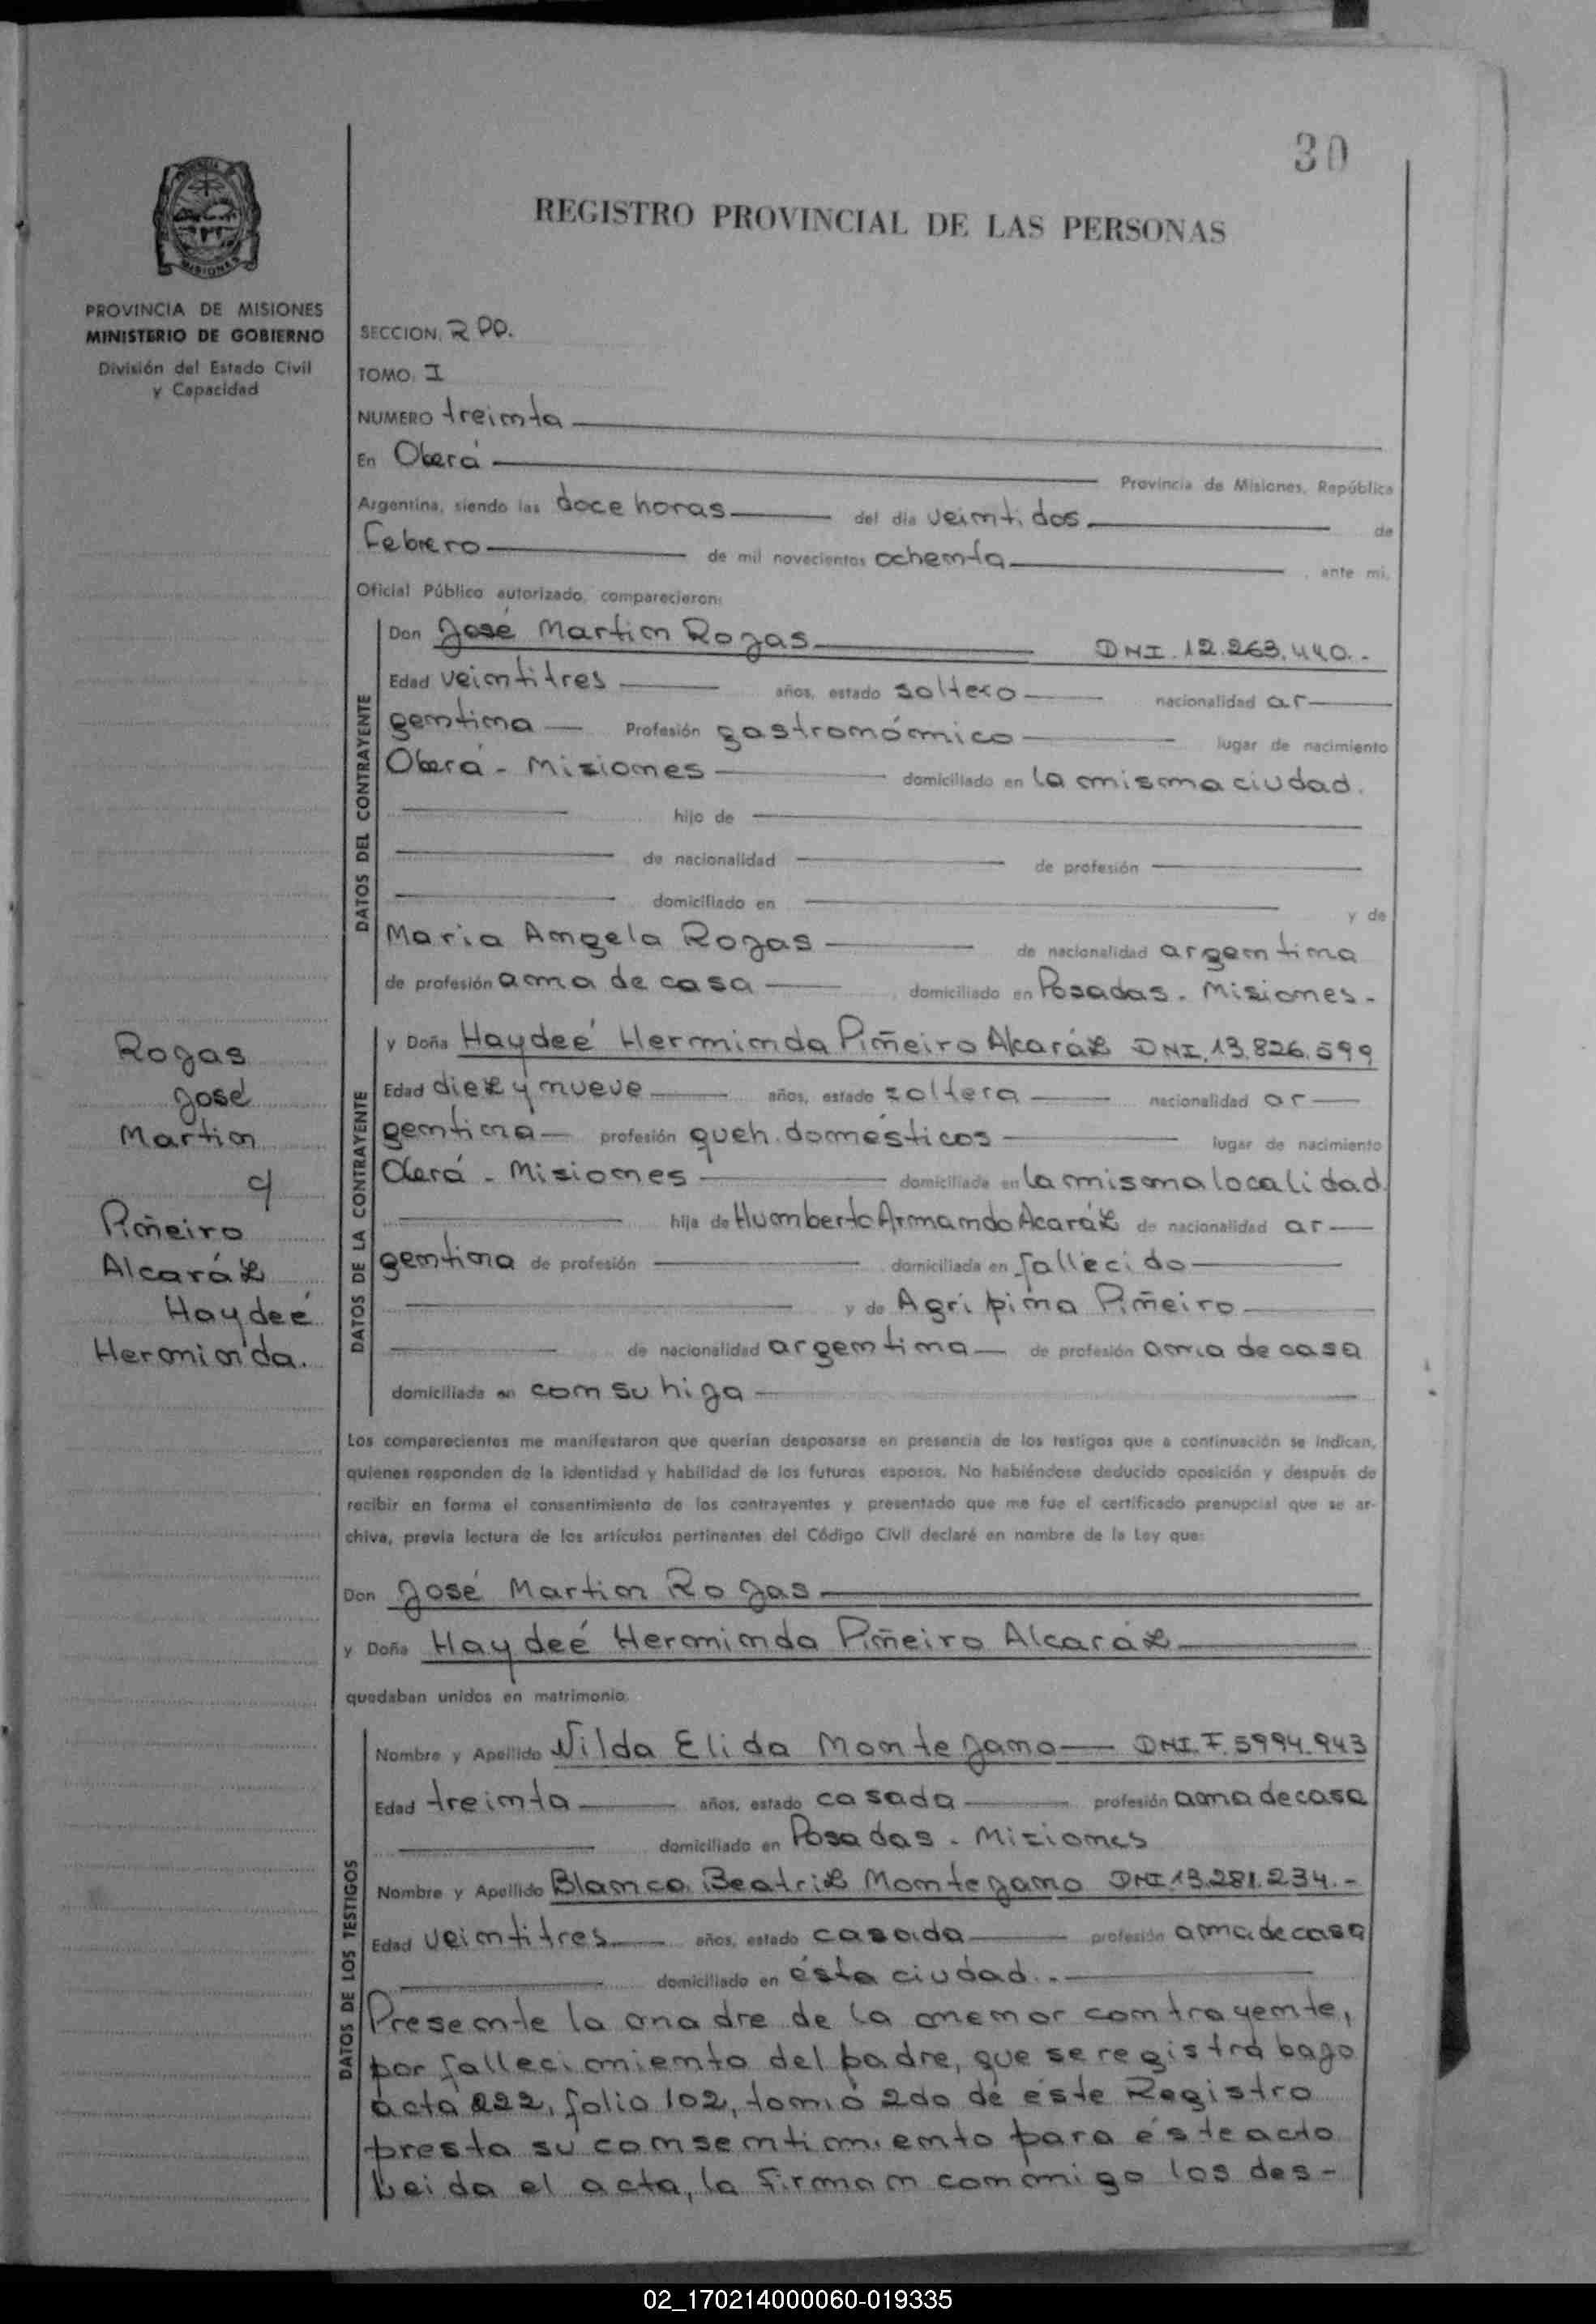 30
REGISTRO PROVINCIAL DE LAS PERSONAS
PROVINCIA DE MISIONES
MINISTERIO DE GOBIERNO
División del Estado Civil
y Capacidad
SECCION, R PP.
TOMO, I
NUMERO treinta
En Oberá Provincia de Misiones, República
Argentina, siendo las doce horas del día veintidos de
Febrero de mil novecientos ochenta, ante mi,
Oficial Público autorizado, comparecieron:
DATOS DEL CONTRAYENTE
Don José Martin Rojas DNI. 12.263.440.-
Edad veintitres años, estado soltero nacionalidad ar
gentina Profesión gastronómico lugar de nacimiento
Oberá - Misiones domiciliado en la misma ciudad.
hijo de
de nacionalidad de profesión
domiciliado en y de
Maria Angela Rojas de nacionalidad argentina
de profesión ama de casa domiciliado en Posadas - Misiones -
DATOS DE LA CONTRAYENTE
y Doña Haydeé Herminda Piñeiro Alcaráz DNI. 13.826.599
Edad diez y nueve años, estado soltera nacionalidad ar
gentina profesión queh. domésticos lugar de nacimiento
Oberá - Misiones domiciliada en la misma localidad
hija de Humberto Armando Acaráz de nacionalidad ar
gentina de profesión domiciliada en fallecido
y de Agripina Piñeiro
de nacionalidad argentina de profesión ama de casa
domiciliada en con su hija
Rojas
José
Martin
c/
Piñeiro
Alcaráz
Haydeé
Herminda.
Los comparecientes me manifestaron que querían desposarse en presencia de los testigos que a continuación se indican,
quienes responden de la identidad y habilidad de los futuros esposos. No habiéndose deducido oposición y después de
recibir en forma el consentimiento de los contrayentes y presentado que me fue el certificado prenupcial que se ar-
chiva, previa lectura de los artículos pertinentes del Código Civil declaré en nombre de la Ley que:
Don José Martin Rojas
y Doña Haydeé Herminda Piñeiro Alcaráz
quedaban unidos en matrimonio.
DATOS DE LOS TESTIGOS
Nombre y Apellido Nilda Elida Montejano DNI. F. 5994.943
Edad treinta años, estado casada profesión ama de casa
domiciliado en Posadas - Misiones
Nombre y Apellido Blanca Beatriz Montejano DNI. 13.281.234.-
Edad veintitres años, estado casada profesión ama de casa
domiciliado en ésta ciudad.-
Presente la madre de la menor contrayente,
por fallecimiento del padre, que se registra bajo
acta 222, folio 102, tomo 2do de éste Registro
presta su consentimiento para éste acto
Leida el acta, la firman conmigo los des-
02_170214000060-019335